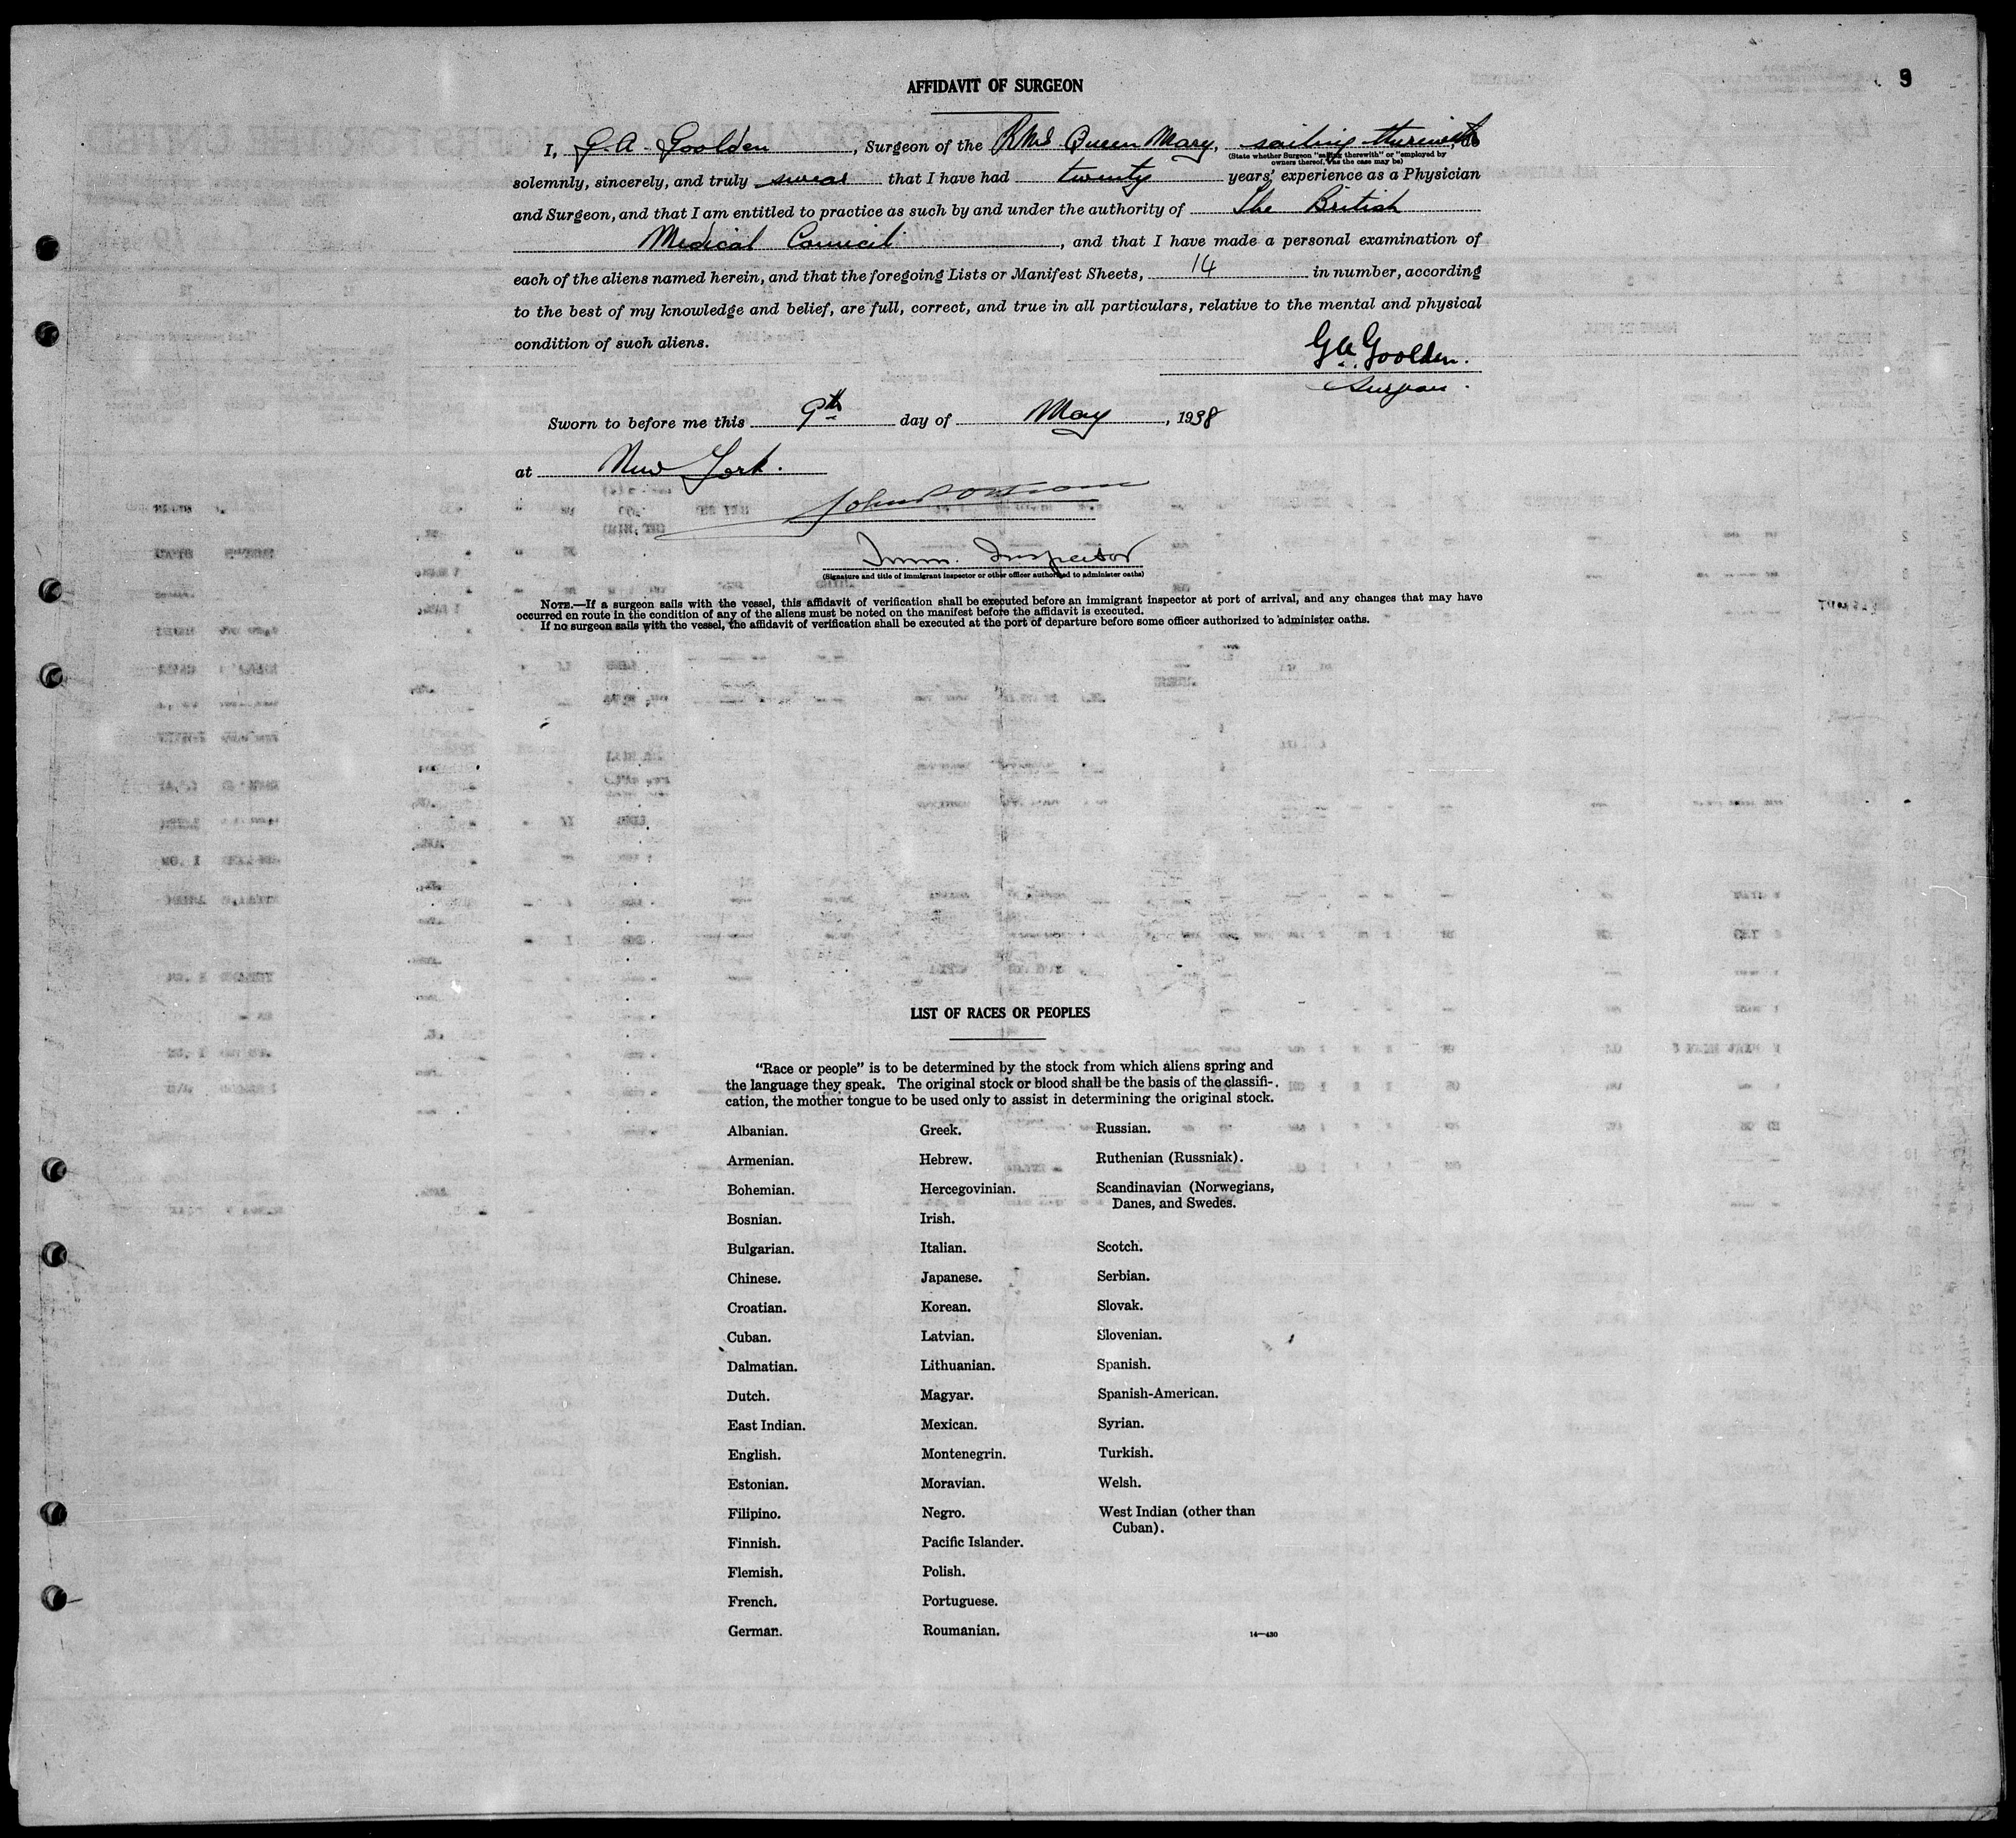 9
AFFIDAVIT OF SURGEON
I, G. A. Goolden, Surgeon of the RMS Queen Mary, sailing therewith, do
(State whether Surgeon "sailing therewith" or "employed by
owners thereof," as the case may be)
solemnly, sincerely, and truly swear that I have had twenty years' experience as a Physician
and Surgeon, and that I am entitled to practice as such by and under the authority of The British
Medical Council, and that I have made a personal examination of
each of the aliens named herein, and that the foregoing Lists or Manifest Sheets, 14 in number, according
to the best of my knowledge and belief, are full, correct, and true in all particulars, relative to the mental and physical
condition of such aliens.
G A Goolden.
Surgeon.
Sworn to before me this 9th day of May, 1938
at New York.
John
Imm. Inspector
(Signature and title of immigrant inspector or other officer authorized to administer oaths)
NOTE.—If a surgeon sails with the vessel, this affidavit of verification shall be executed before an immigrant inspector at port of arrival, and any changes that may have
occurred en route in the condition of any of the aliens must be noted on the manifest before the affidavit is executed.
If no surgeon sails with the vessel, the affidavit of verification shall be executed at the port of departure before some officer authorized to administer oaths.
LIST OF RACES OR PEOPLES
"Race or people" is to be determined by the stock from which aliens spring and
the language they speak. The original stock or blood shall be the basis of the classifi-
cation, the mother tongue to be used only to assist in determining the original stock.
Albanian.
Armenian.
Bohemian.
Bosnian.
Bulgarian.
Chinese.
Croatian.
Cuban.
Dalmatian.
Dutch.
East Indian.
English.
Estonian.
Filipino.
Finnish.
Flemish.
French.
German.
Greek.
Hebrew.
Hercegovinian.
Irish.
Italian.
Japanese.
Korean.
Latvian.
Lithuanian.
Magyar.
Mexican.
Montenegrin.
Moravian.
Negro.
Pacific Islander.
Polish.
Portuguese.
Roumanian.
Russian.
Ruthenian (Russniak).
Scandinavian (Norwegians,
Danes, and Swedes.
Scotch.
Serbian.
Slovak.
Slovenian.
Spanish.
Spanish-American.
Syrian.
Turkish.
Welsh.
West Indian (other than
Cuban).
14—430